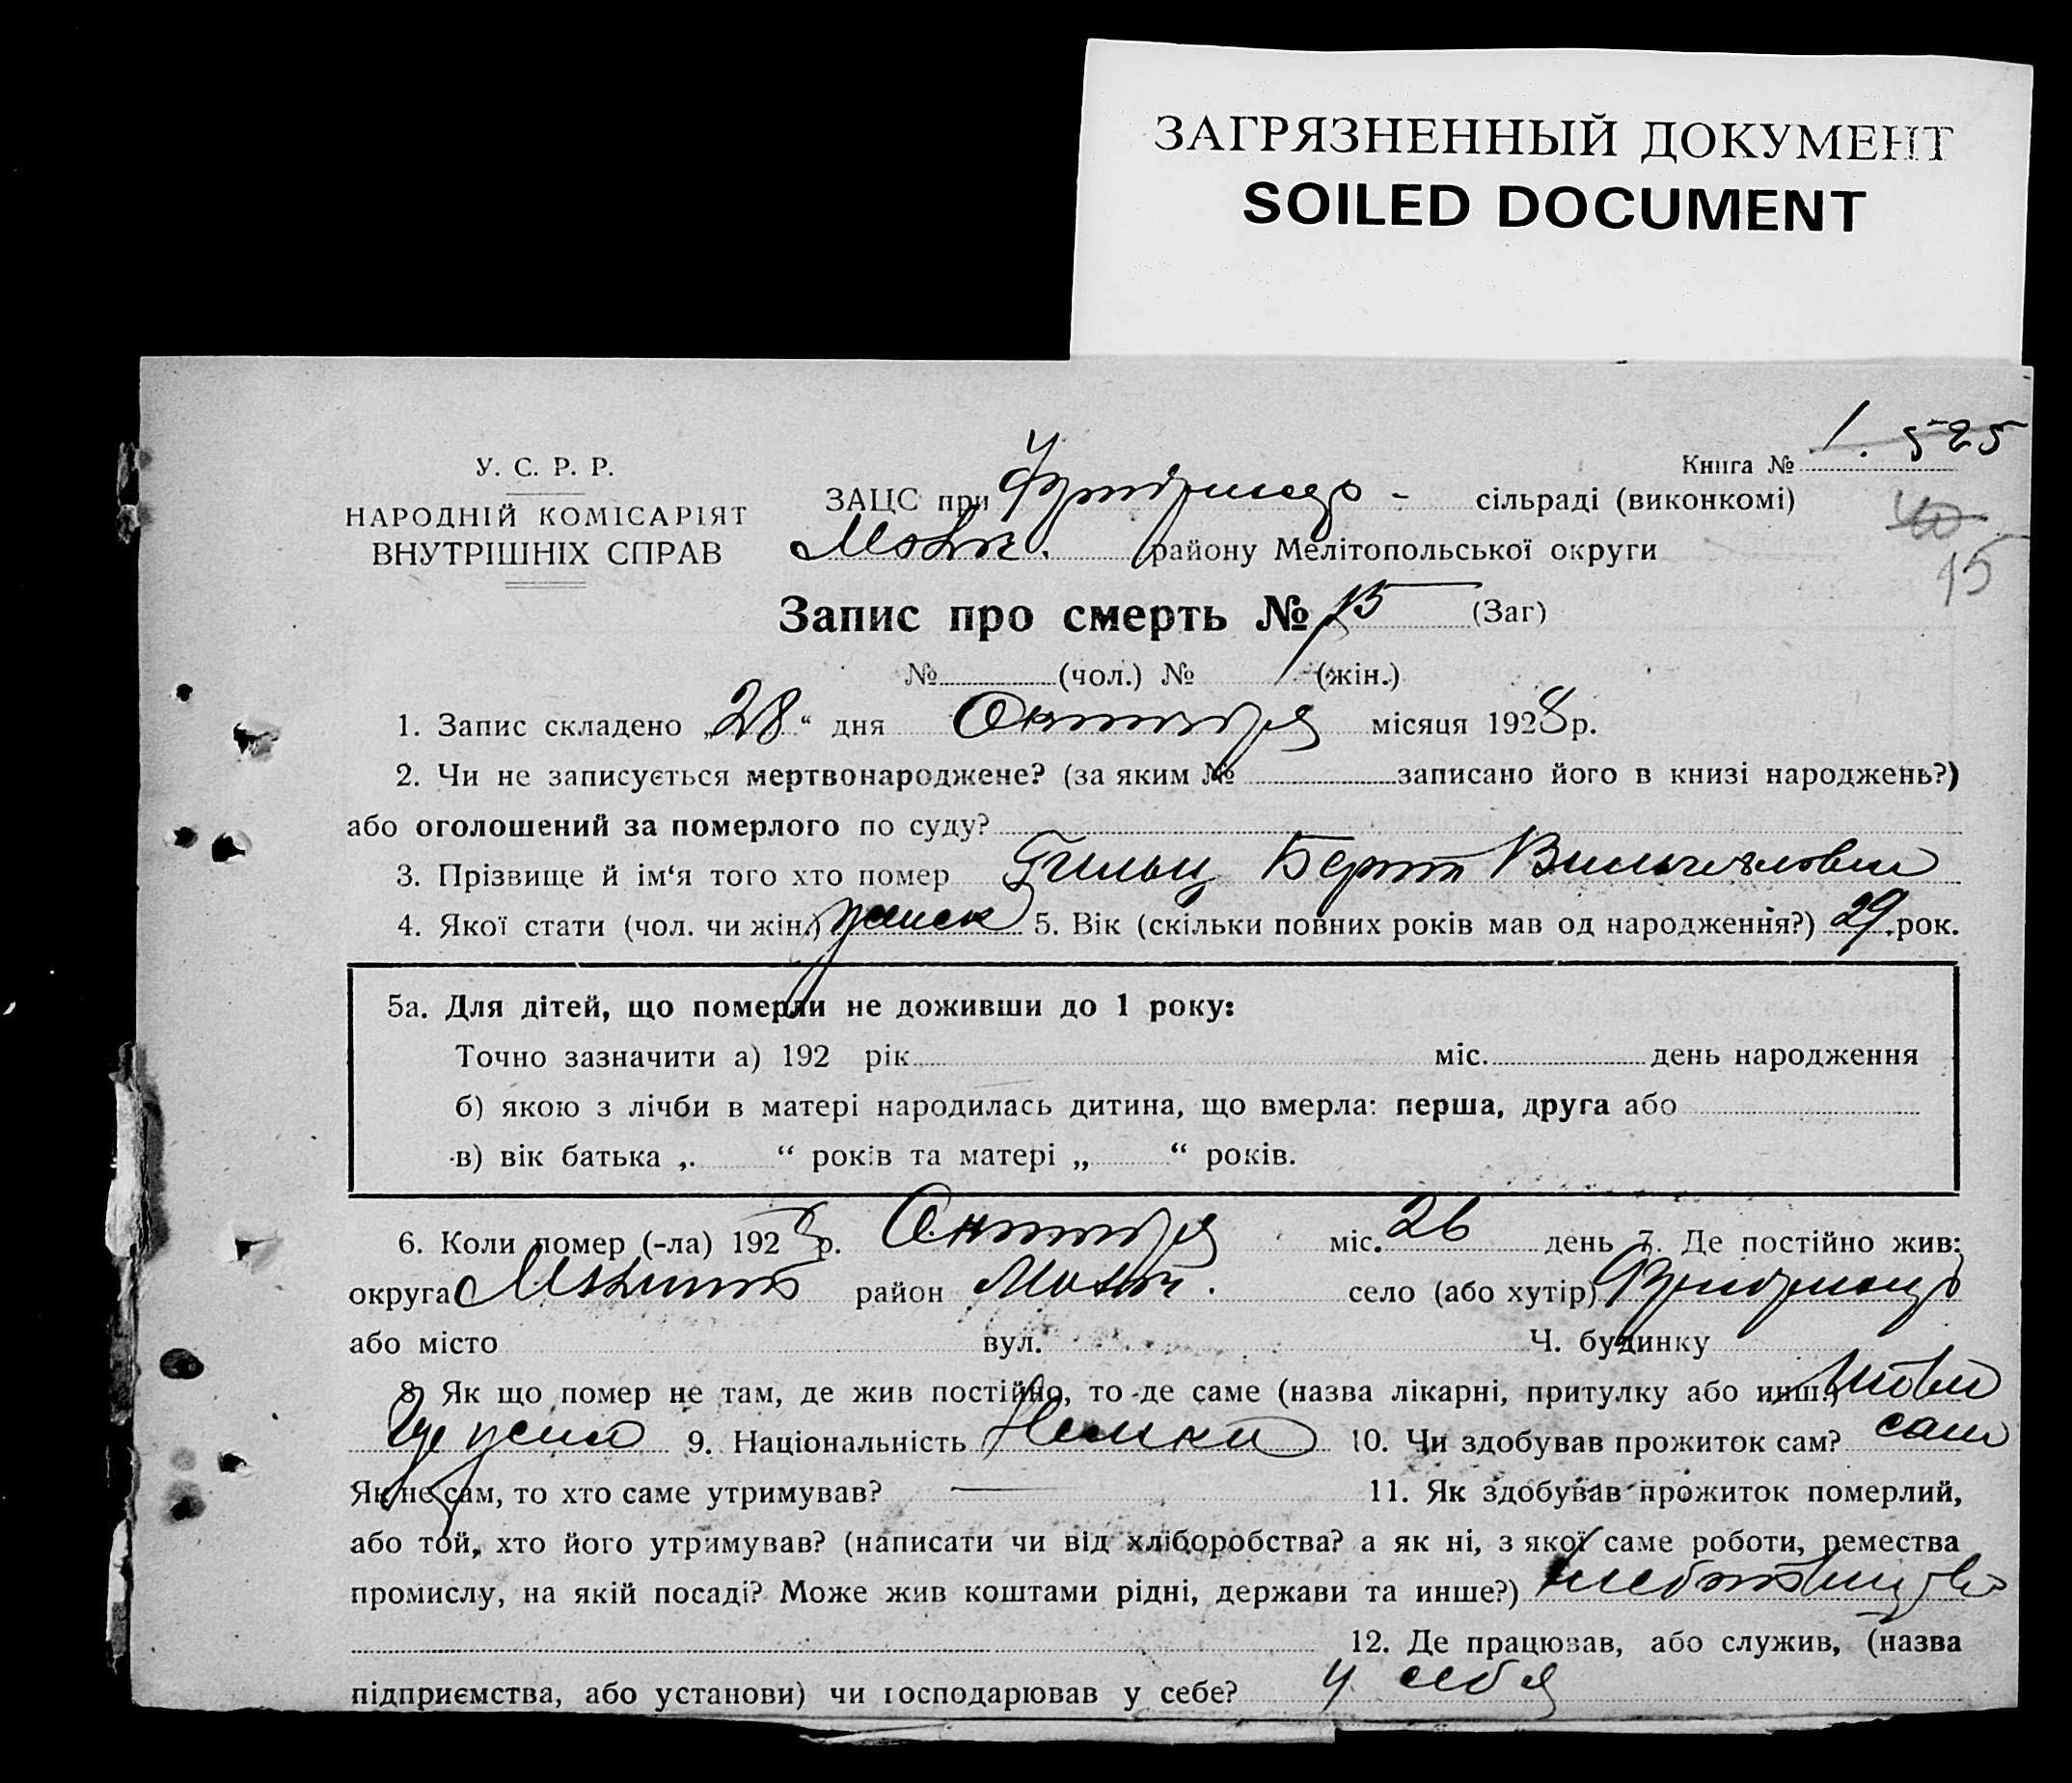 ЗАГРЯЗНЕННЫЙ ДОКУМЕНТ
SOILED DOCUMENT
У. С. Р. Р.
НАРОДНІЙ КОМІСАРІЯТ
ВНУТРІШНІХ СПРАВ
Книга № 1. 525
ЗАЦС при сільраді (виконкомі)
40
Молоч. району Мелітопольської округи
15
Запис про смерть № 15 (Заг)
№ (чол.) № (жін.)
1. Запис складено „28“ дня Октября місяця 1928 р.
2. Чи не записується мертвонароджене? (за яким № записано його в книзі народжень?)
або оголошений за померлого по суду?
3. Прізвище й ім‘я того хто помер Гильц Берта
4. Якої стати (чол. чи жін.) женск 5. Вік (скільки повних років мав од народження?) 29 рок.
5а. Для дітей, що померли не доживши до 1 року:
Точно зазначити а) 192 рік міс. день народження
б) якою з лічби в матері народилась дитина, що вмерла: перша, друга або
в) вік батька „ “ років та матері „ “ років.
6. Коли помер (-ла) 1928 р. Октября міс. 26 день 7. Де постійно жив:
округа Мелитоп район Молоч. село (або хутір)
або місто вул. Ч. будинку
8. Як що помер не там, де жив постійно, то де саме (назва лікарні, притулку або инш.)
9. Національність Немка 10. Чи здобував прожиток сам? сам
Як не сам, то хто саме утримував? —
11. Як здобував прожиток померлий,
або той, хто його утримував? (написати чи від хліборобства? а як ні, з якої саме роботи, ремества
промислу, на якій посаді? Може жив коштами рідні, держави та инше?)
12. Де працював, або служив, (назва
підприємства, або установи) чи господарював у себе? у себя